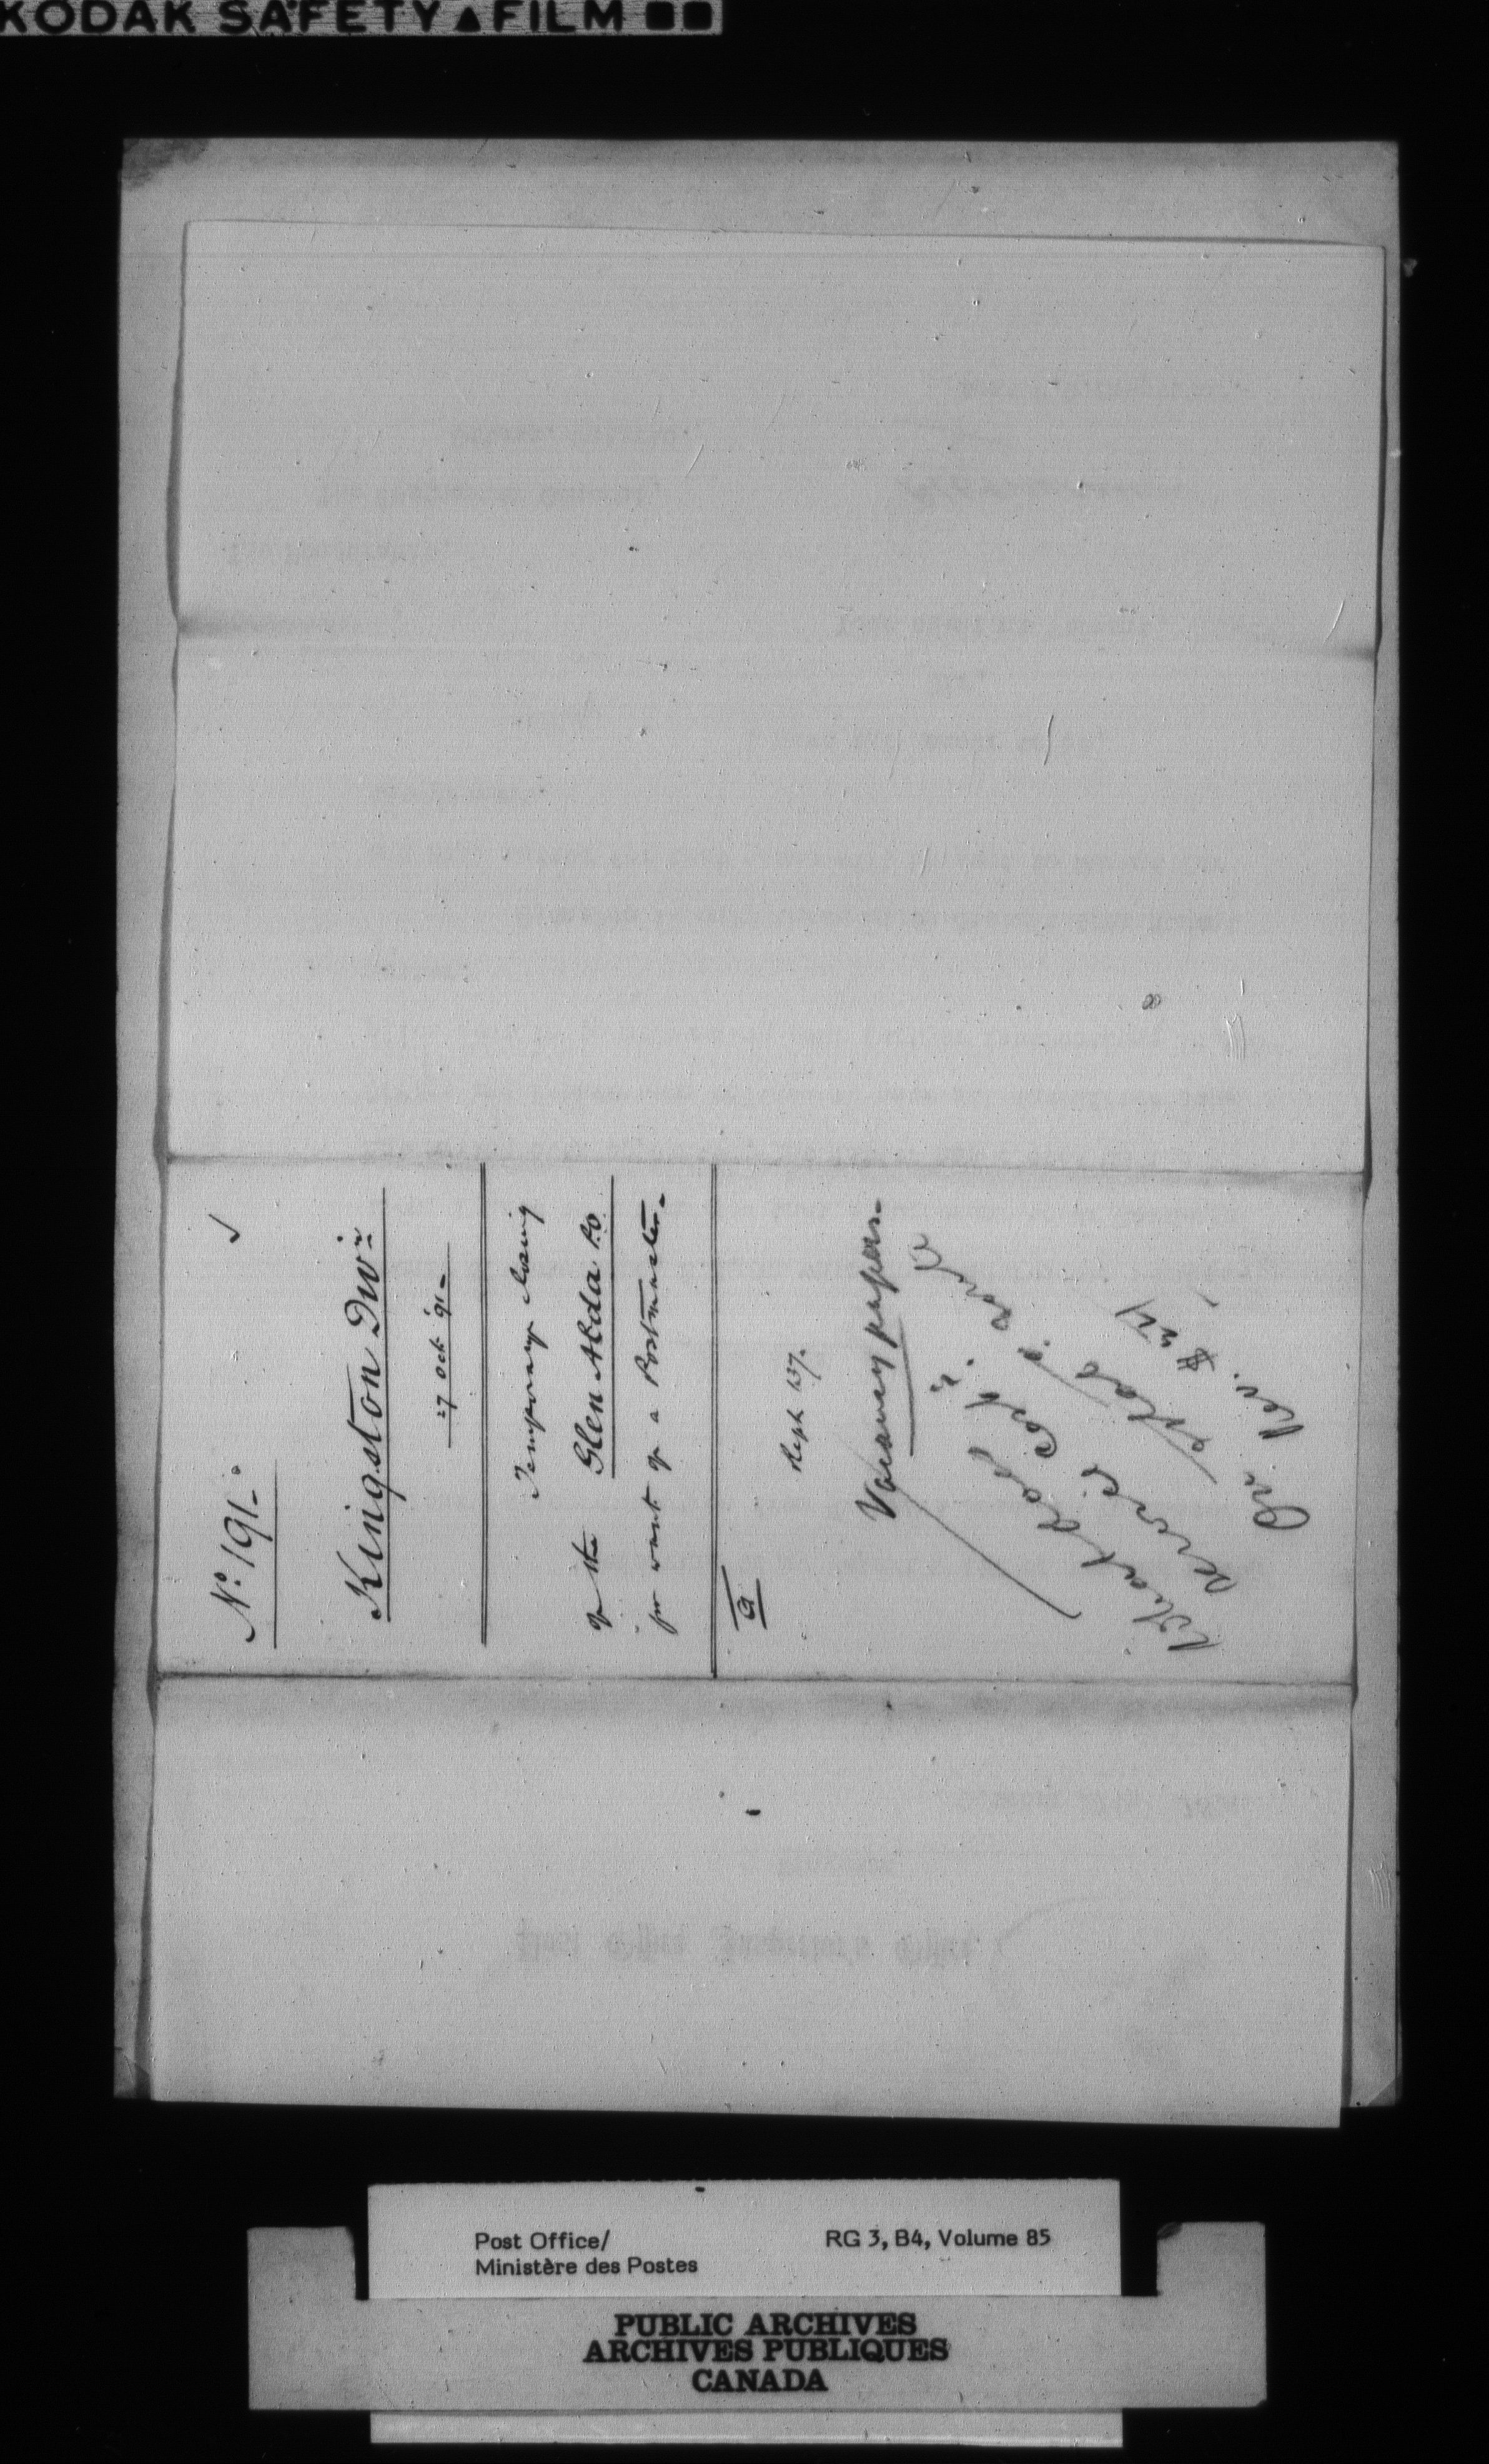 KODAK SAFETY ▲ FILM ■■
No. 191.
Kingston Divn
27 Oct '91
Temporary closing
of the Glen Alda P.O.
for want of a Postmaster.
Vacancy papers.
What does
service cost?
Rev. $
Post Office/
Ministère des Postes
RG 3, B4, Volume 85
PUBLIC ARCHIVES
ARCHIVES PUBLIQUES
CANADA